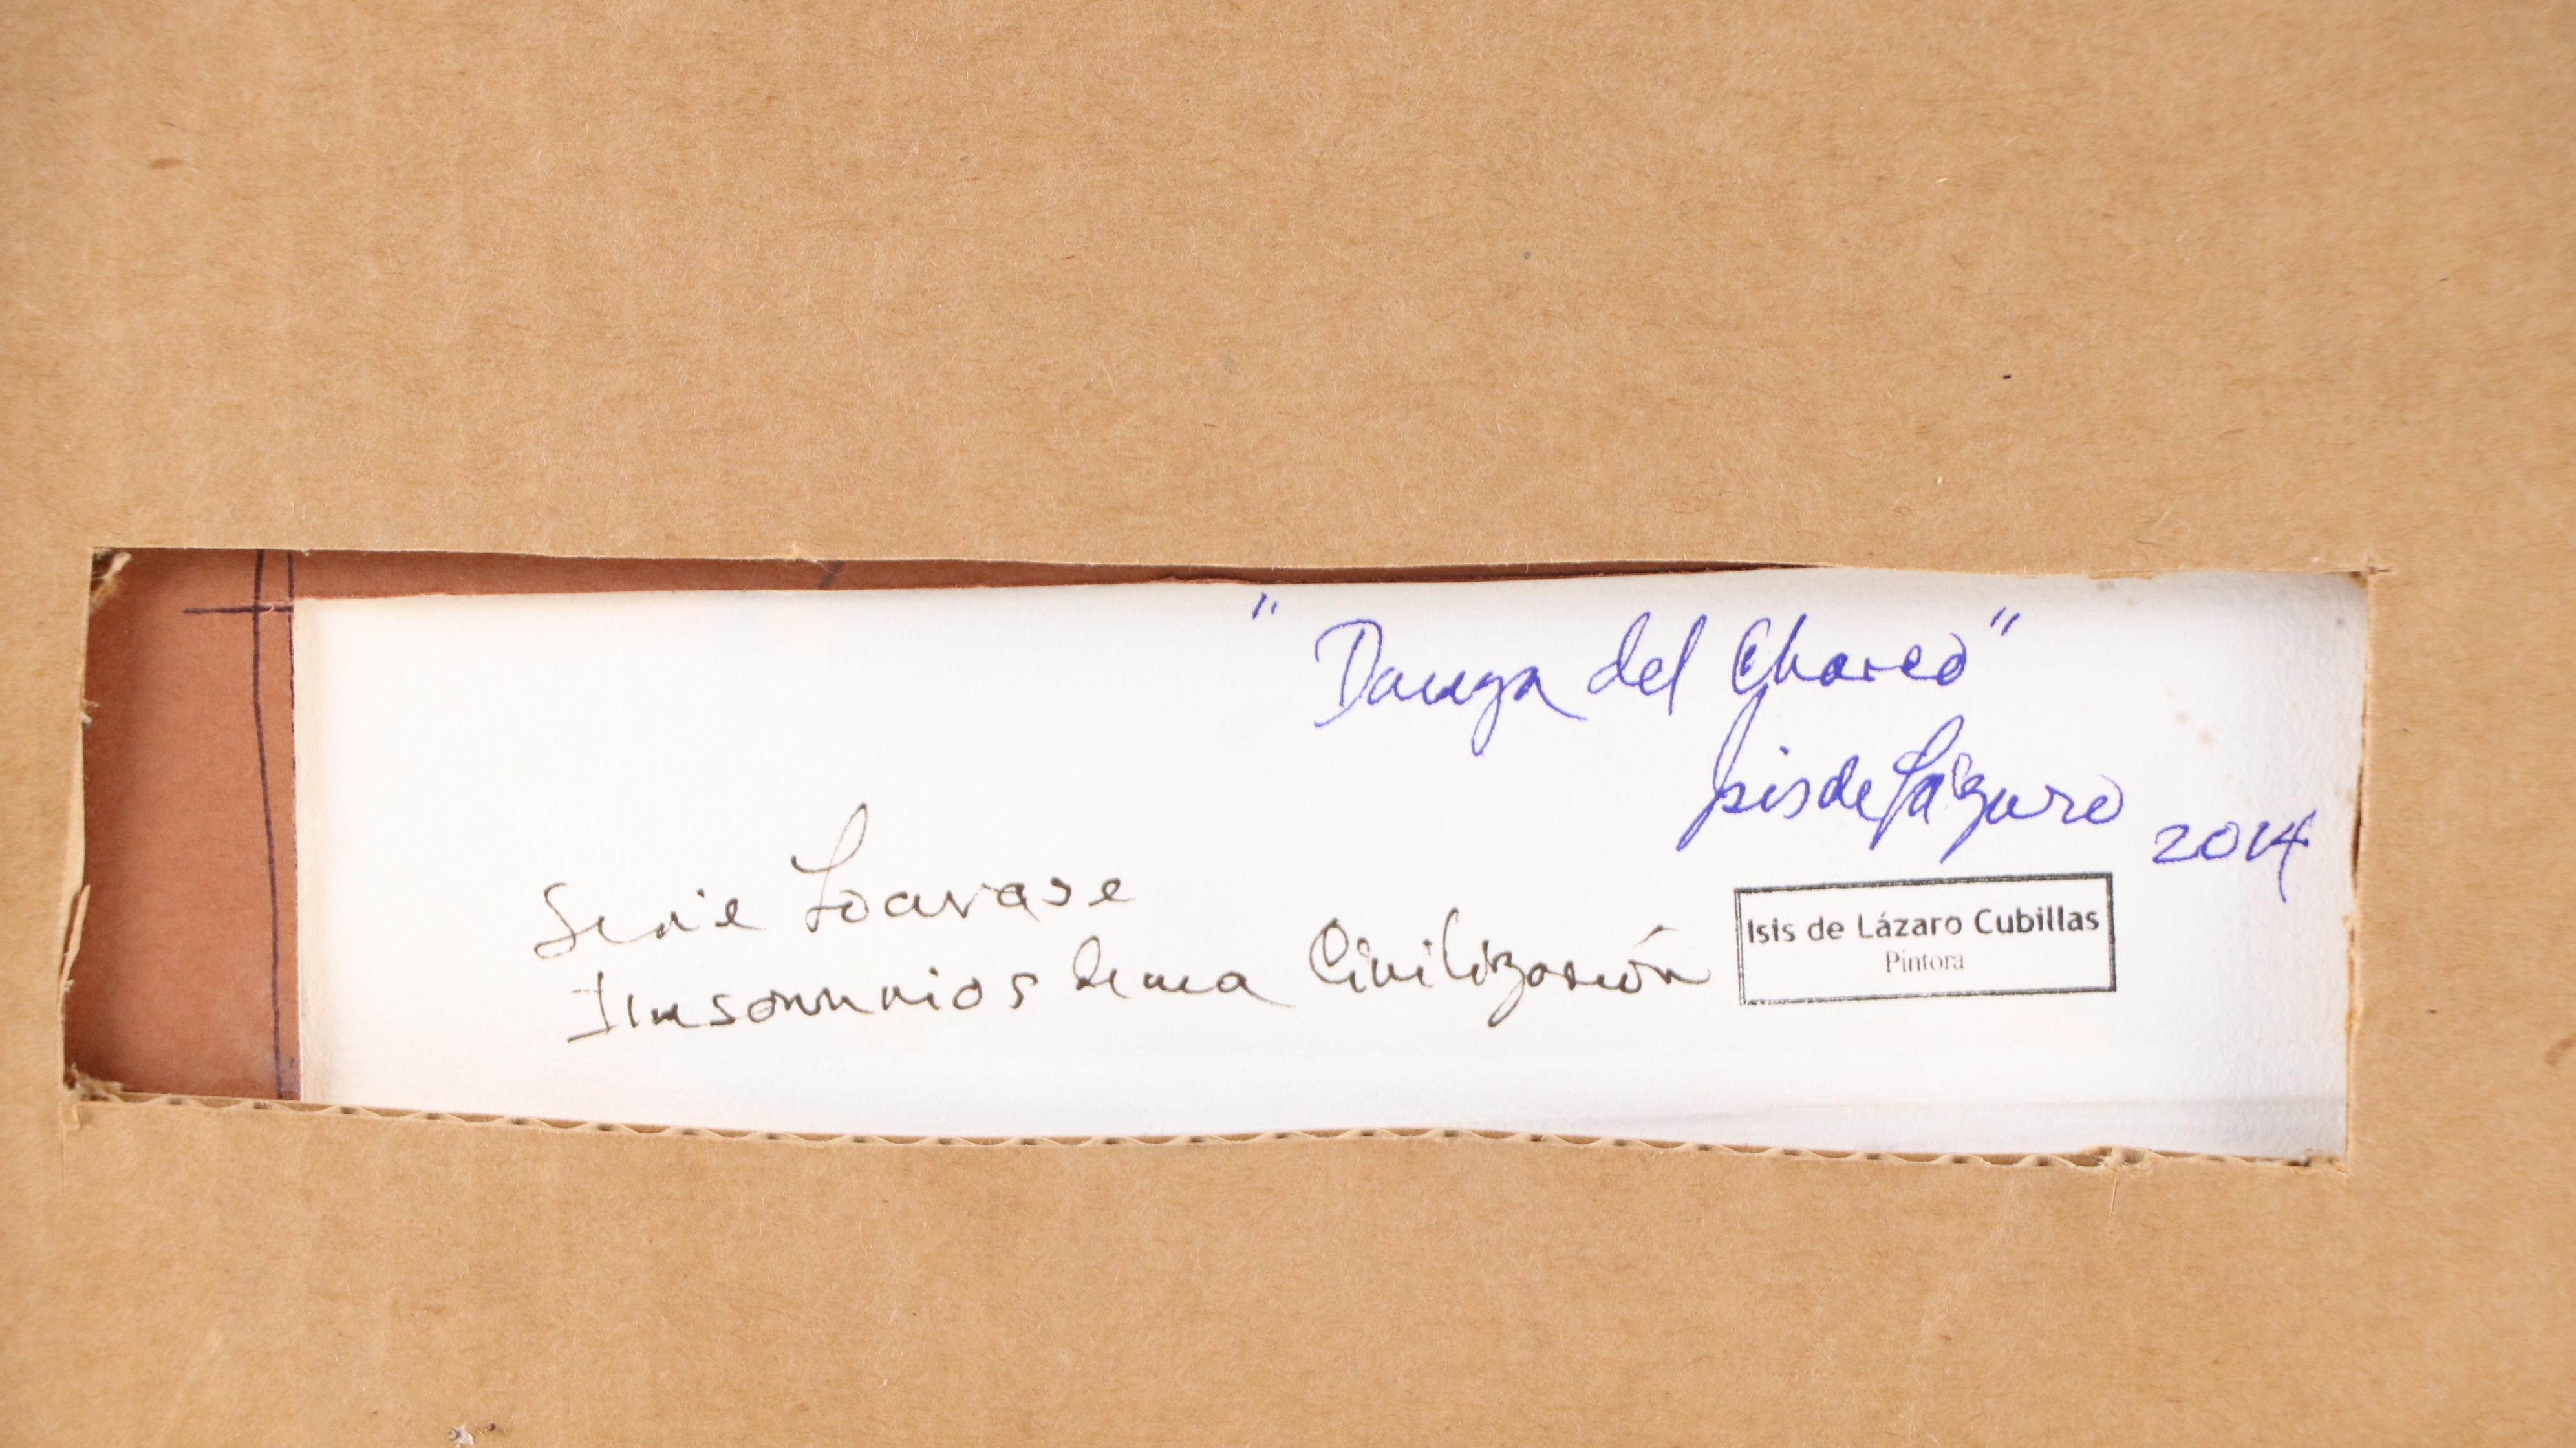 " Danza del Charco"
Isis de Lázaro 2014
Serie
Imsomnios de una Civilización
Isis de Lázaro Cubillas
Pintora